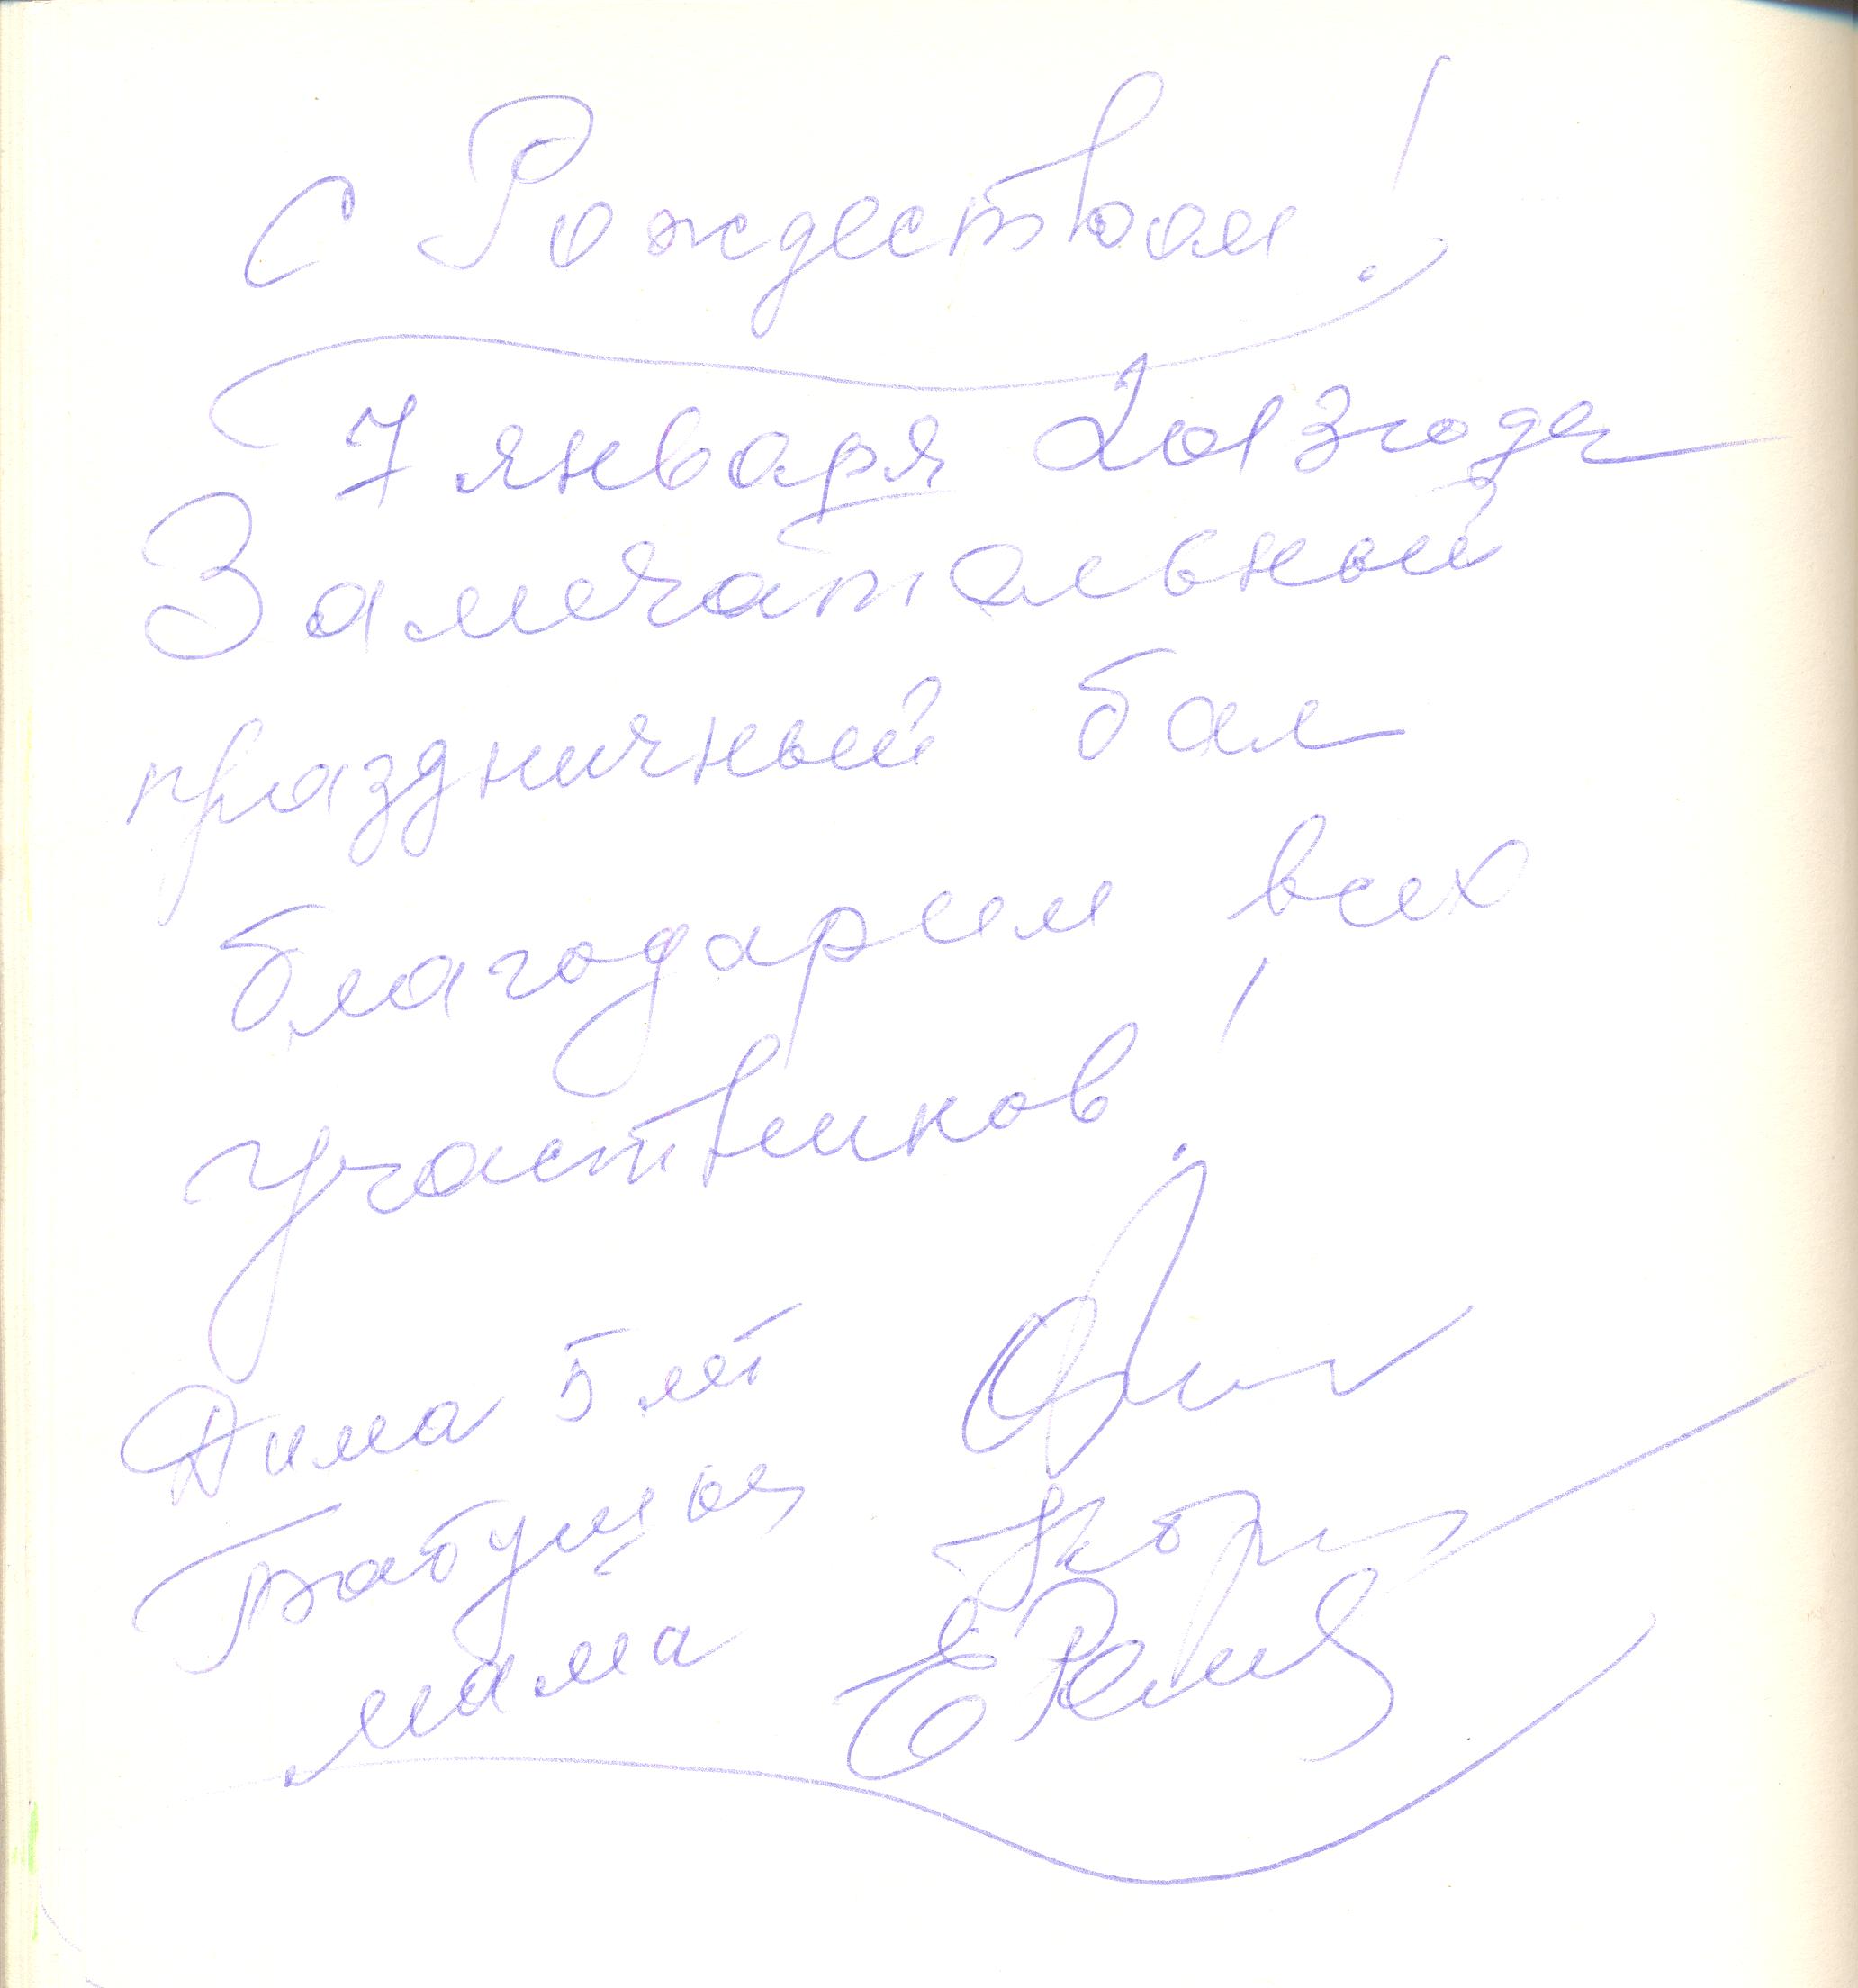 С Рождеством!
7 января 2013 года
Замечательный
праздничный бал
благодарим всех
участников!
Дима 5 лет
Бабушка
мама